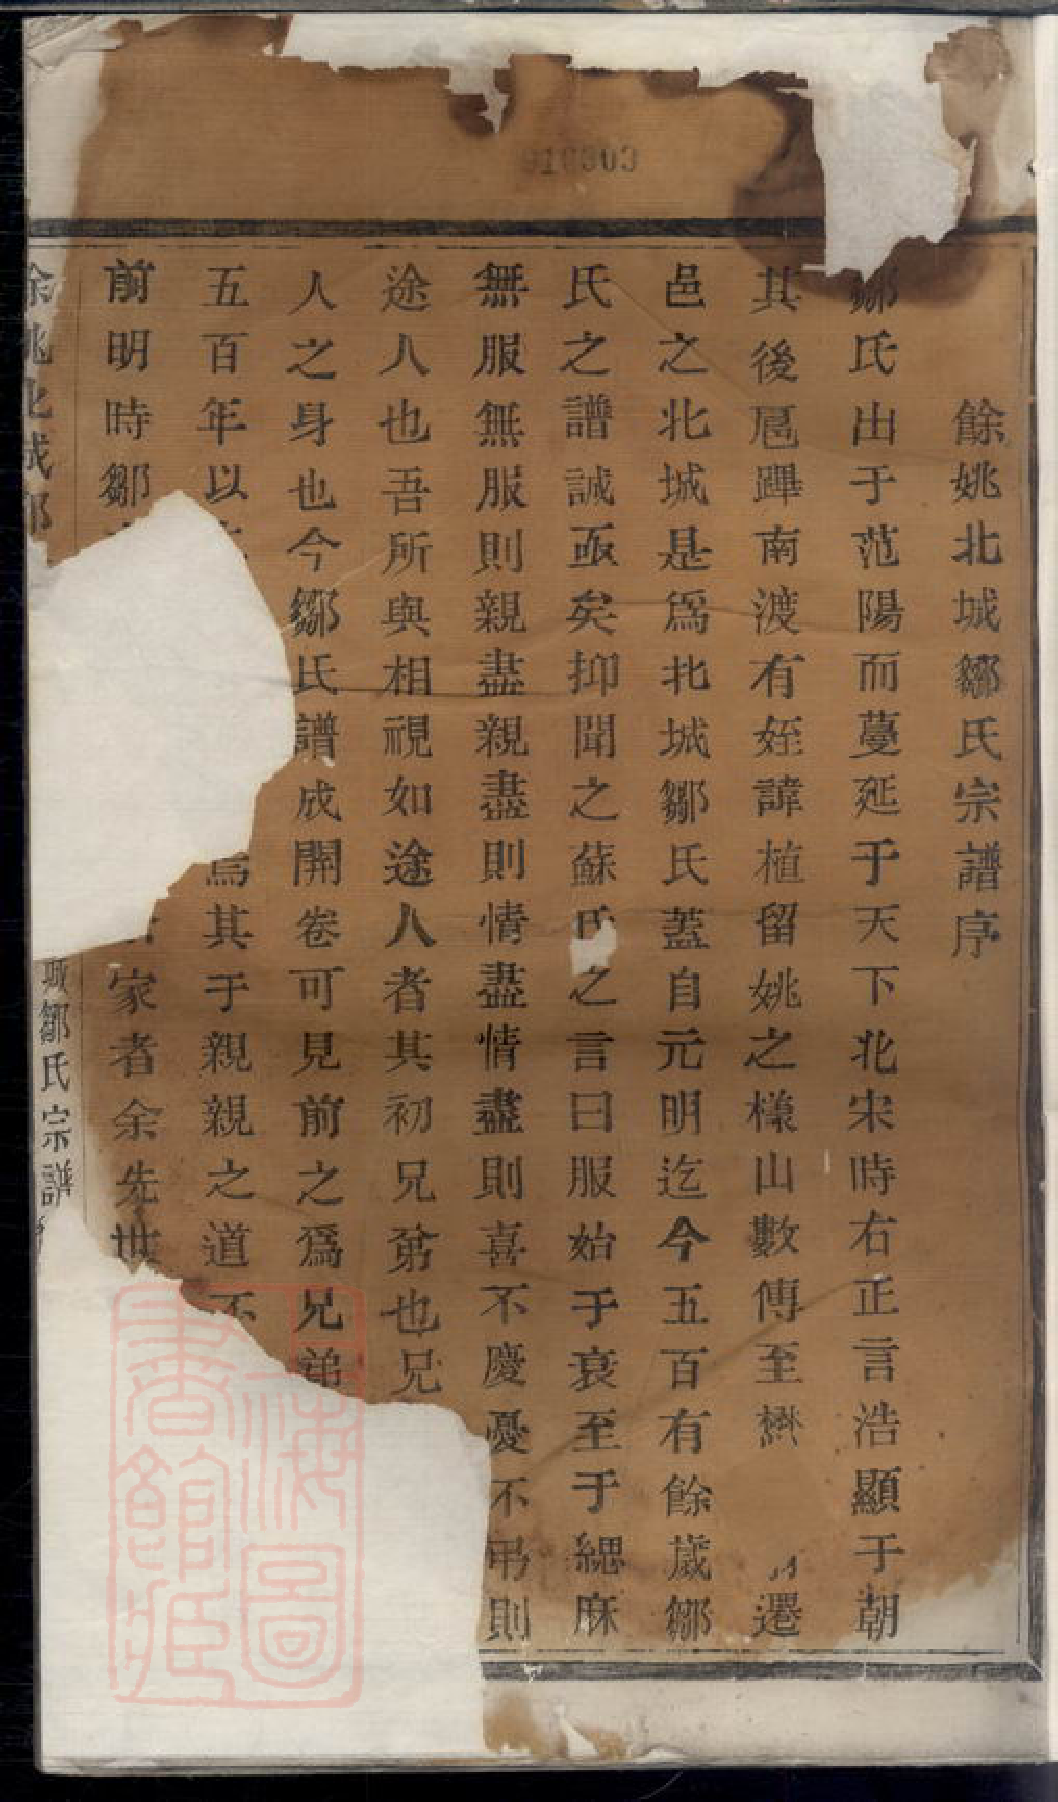 餘姚北城鄒氏宗譜序
鄒氏出于范陽而蔓延于天下北宋時右正言浩顯于朝
其後扈蹕南渡有姪諱植留姚之樣山數傳至楙遷
邑之北城是爲北城鄒氏蓋自元明迄今五百有餘歲鄒
氏之譜誠亟矣抑聞之蘇氏之言曰服始于衰至于緦麻
無服無服則親盡親盡則情盡情盡則喜不慶憂不弔則
途人也吾所與相視如途人者其初兄弟也兄
人之身也今鄒氏譜成開卷可見前之爲兄弟
五百年以焉其于親親之道不
前明時鄒家者余先世
余姚北城鄒
城鄒氏宗譜
上海圖書館藏
910303